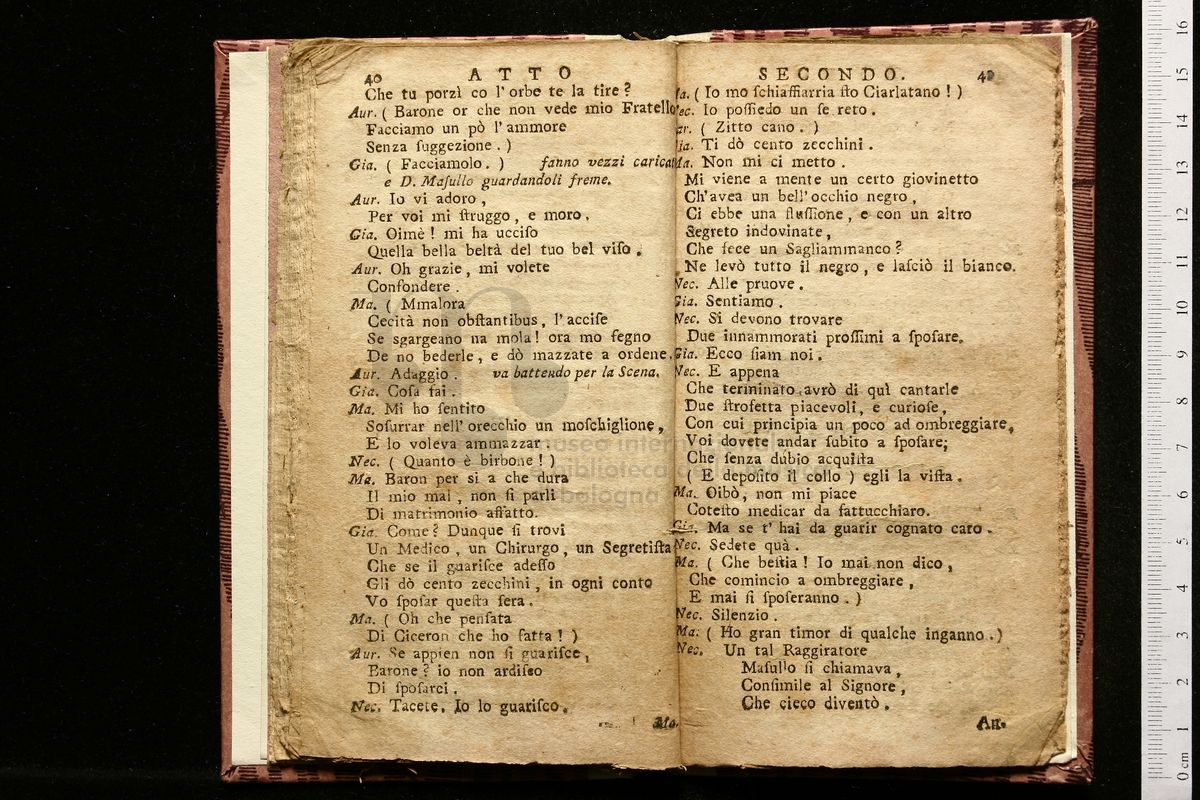 40 ATTO
Che tu porzì co l'orbe te la tire?
Aur. ( Barone or che non vede mio Fratello
Facciamo un pò l'ammore
Senza ſuggezione. )
Gia. ( Facciamolo. ) fanno vezzi caricat
e D. Maſullo guardandoli freme.
Aur. Io vi adoro,
Per voi mi ſtruggo, e moro.
Gia. Oimè! mi ha ucciſo
Quella bella beltà del tuo bel viſo.
Aur. Oh grazie, mi volete
Confondere.
Ma. ( Mmalora
Cecità non obſtantibus, l'acciſe
Se sgargeano na mola! ora mo fegno
De no bederle, e dò mazzate a ordene.
Aur. Adaggio. va battendo per la Scena.
Gia. Coſa fai.
Ma. Mi ho ſentito
Soſurrar nell'orecchio un moſchiglione,
E lo voleva ammazzar.
Nec. ( Quanto è birbone! )
Ma. Baron per sì a che dura
Il mio mal, non ſi parli
Di matrimonio affatto.
Gia. Come? Dunque ſi trovi
Un Medico, un Chirurgo, un Segretiſta
Che se il guariſce adeſſo
Gli dò cento zecchini, in ogni conto
Vo ſpoſar queſta ſera.
Ma. ( Oh che penſata
Di Ciceron che ho fatta! )
Aur. Se appien non ſi guariſce,
Barone? io non ardiſco
Di ſpoſarci.
Nec. Tacete. Io lo guariſco.
Ma.
SECONDO.
Ma. ( Io mo ſchiaffiarria ſto Ciarlatano! )
Nec. Io poſſiedo un ſe reto.
ar. ( Zitto cano. )
Gia. Ti dò cento zecchini.
Ma. Non mi ci metto.
Mi viene a mente un certo giovinetto
Ch'avea un bell'occhio negro,
Ci ebbe una fluſſione, e con un altro
Segreto indovinate,
Che fece un Sagliammanco?
Ne levò tutto il negro, e laſciò il bianco.
Nec. Alle pruove.
Gia. Sentiamo.
Nec. Si devono trovare
Due innammorati proſſimi a ſpoſare.
Gia. Ecco ſiam noi.
Nec. E appena
Che terminato avrò di quì cantarle
Due ſtrofetta piacevoli, e curioſe,
Con cui principia un poco ad ombreggiare,
Voi dovete andar ſubito a ſpoſare;
Che ſenza dubio acquiſta
( E depoſito il collo ) egli la viſta.
Ma. Oibò, non mi piace
Coteſto medicar da fattucchiaro.
Gia. Ma se t'hai da guarir cognato caro.
Nec. Sedete quà.
Ma. ( Che beſtia! Io mai non dico,
Che comincio a ombreggiare,
E mai ſi ſpoſeranno. )
Nec. Silenzio.
Ma. ( Ho gran timor di qualche inganno. )
Nec. Un tal Raggiratore
Maſullo ſi chiamava,
Conſimile al Signore,
Che cieco diventò.
An.
museo inter
biblioteca della musica
bologna
0 cm 1 2 3 4 5 6 7 8 9 10 11 12 13 14 15 16